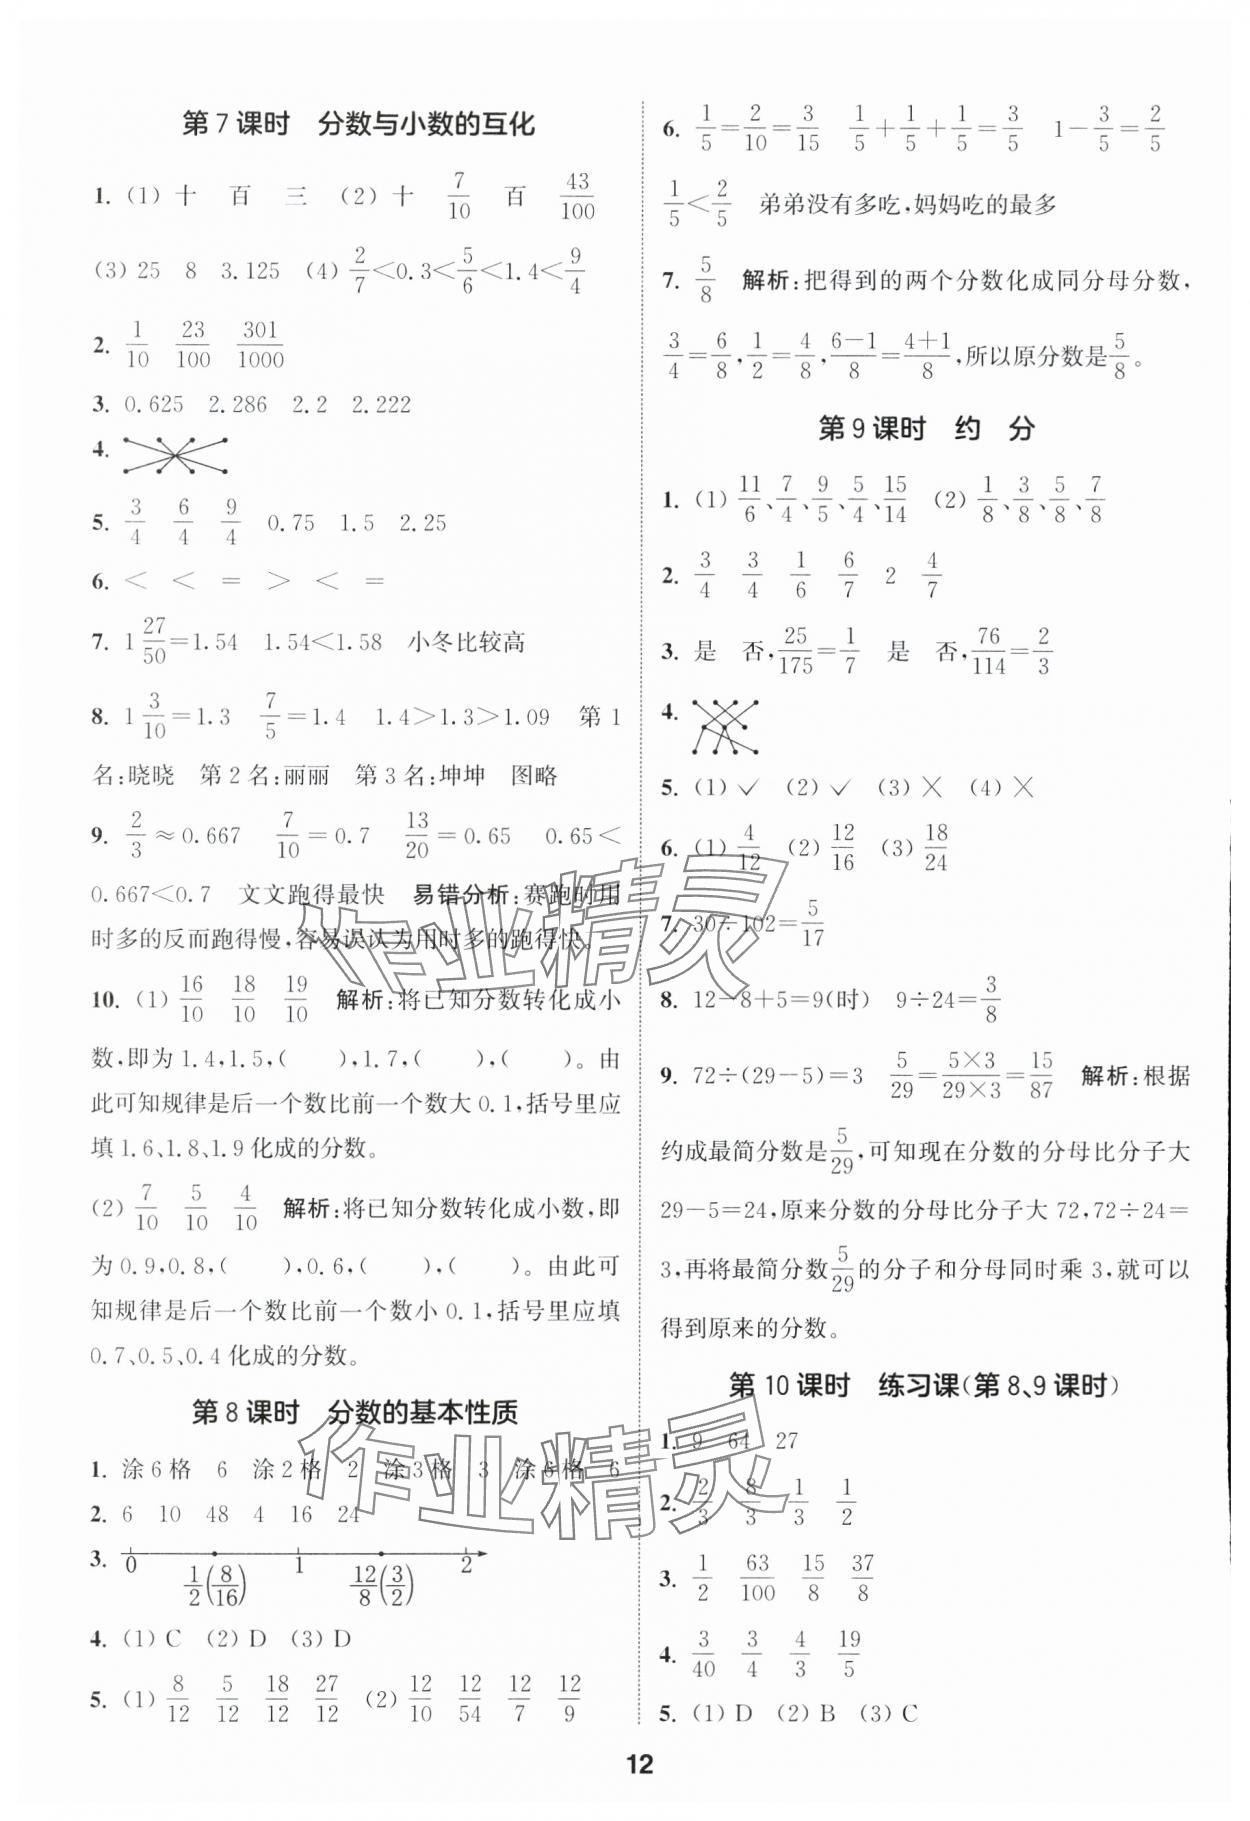 第 7 课时　分数与小数的互化
1. (1) 十　百　三　(2) 十　7/10　百　43/100
(3) 25　8　3.125　(4) 2/7<0.3<5/6<1.4<9/4
2. 1/10　23/100　301/1000
3. 0.625　2.286　2.2　2.222
4.
5. 3/4　6/4　9/4　0.75　1.5　2.25
6. <　<　=　>　<　=
7. 1 27/50=1.54　1.54<1.58　小冬比较高
8. 1 3/10=1.3　7/5=1.4　1.4>1.3>1.09　第 1
名:晓晓　第 2 名:丽丽　第 3 名:坤坤　图略
9. 2/3≈0.667　7/10=0.7　13/20=0.65　0.65<
0.667<0.7　文文跑得最快　易错分析:赛跑时用
时多的反而跑得慢,容易误认为用时多的跑得快。
10. (1) 16/10　18/10　19/10　解析:将已知分数转化成小
数,即为 1.4,1.5,(　　),1.7,(　　),(　　)。由
此可知规律是后一个数比前一个数大 0.1,括号里应
填 1.6、1.8、1.9 化成的分数。
(2) 7/10　5/10　4/10　解析:将已知分数转化成小数,即
为 0.9,0.8,(　　),0.6,(　　),(　　)。由此可
知规律是后一个数比前一个数小 0.1,括号里应填
0.7、0.5、0.4 化成的分数。
第 8 课时　分数的基本性质
1. 涂 6 格　6　涂 2 格　2　涂 3 格　3　涂 6 格　6
2. 6　10　48　4　16　24
3. 0　1/2(8/16)　1　12/8(3/2)　2
4. (1) C　(2) D　(3) D
5. (1) 8/12　5/12　18/12　27/12　(2) 12/10　12/54　12/7　12/9
6. 1/5=2/10=3/15　1/5+1/5+1/5=3/5　1-3/5=2/5
1/5<2/5　弟弟没有多吃,妈妈吃的最多
7. 5/8　解析:把得到的两个分数化成同分母分数,
3/4=6/8,1/2=4/8,(6-1)/8=(4+1)/8,所以原分数是5/8。
第 9 课时　约　分
1. (1) 11/6、7/4、9/5、5/4、15/14　(2) 1/8、3/8、5/8、7/8
2. 3/4　3/4　1/6　6/7　2　4/7
3. 是　否,25/175=1/7　是　否,76/114=2/3
4.
5. (1) ✓　(2) ✓　(3) ×　(4) ×
6. (1) 4/12　(2) 12/16　(3) 18/24
7. 30÷102=5/17
8. 12-8+5=9(时)　9÷24=3/8
9. 72÷(29-5)=3　5/29=(5×3)/(29×3)=15/87　解析:根据
约成最简分数是5/29,可知现在分数的分母比分子大
29-5=24,原来分数的分母比分子大 72,72÷24=
3,再将最简分数5/29的分子和分母同时乘 3,就可以
得到原来的分数。
第 10 课时　练习课(第 8、9 课时)
1. 9　64　27
2. 2/3　8/3　1/3　1/2
3. 1/2　63/100　15/8　37/8
4. 3/40　3/4　4/3　19/5
5. (1) D　(2) B　(3) C
12
作业精灵
作业精灵